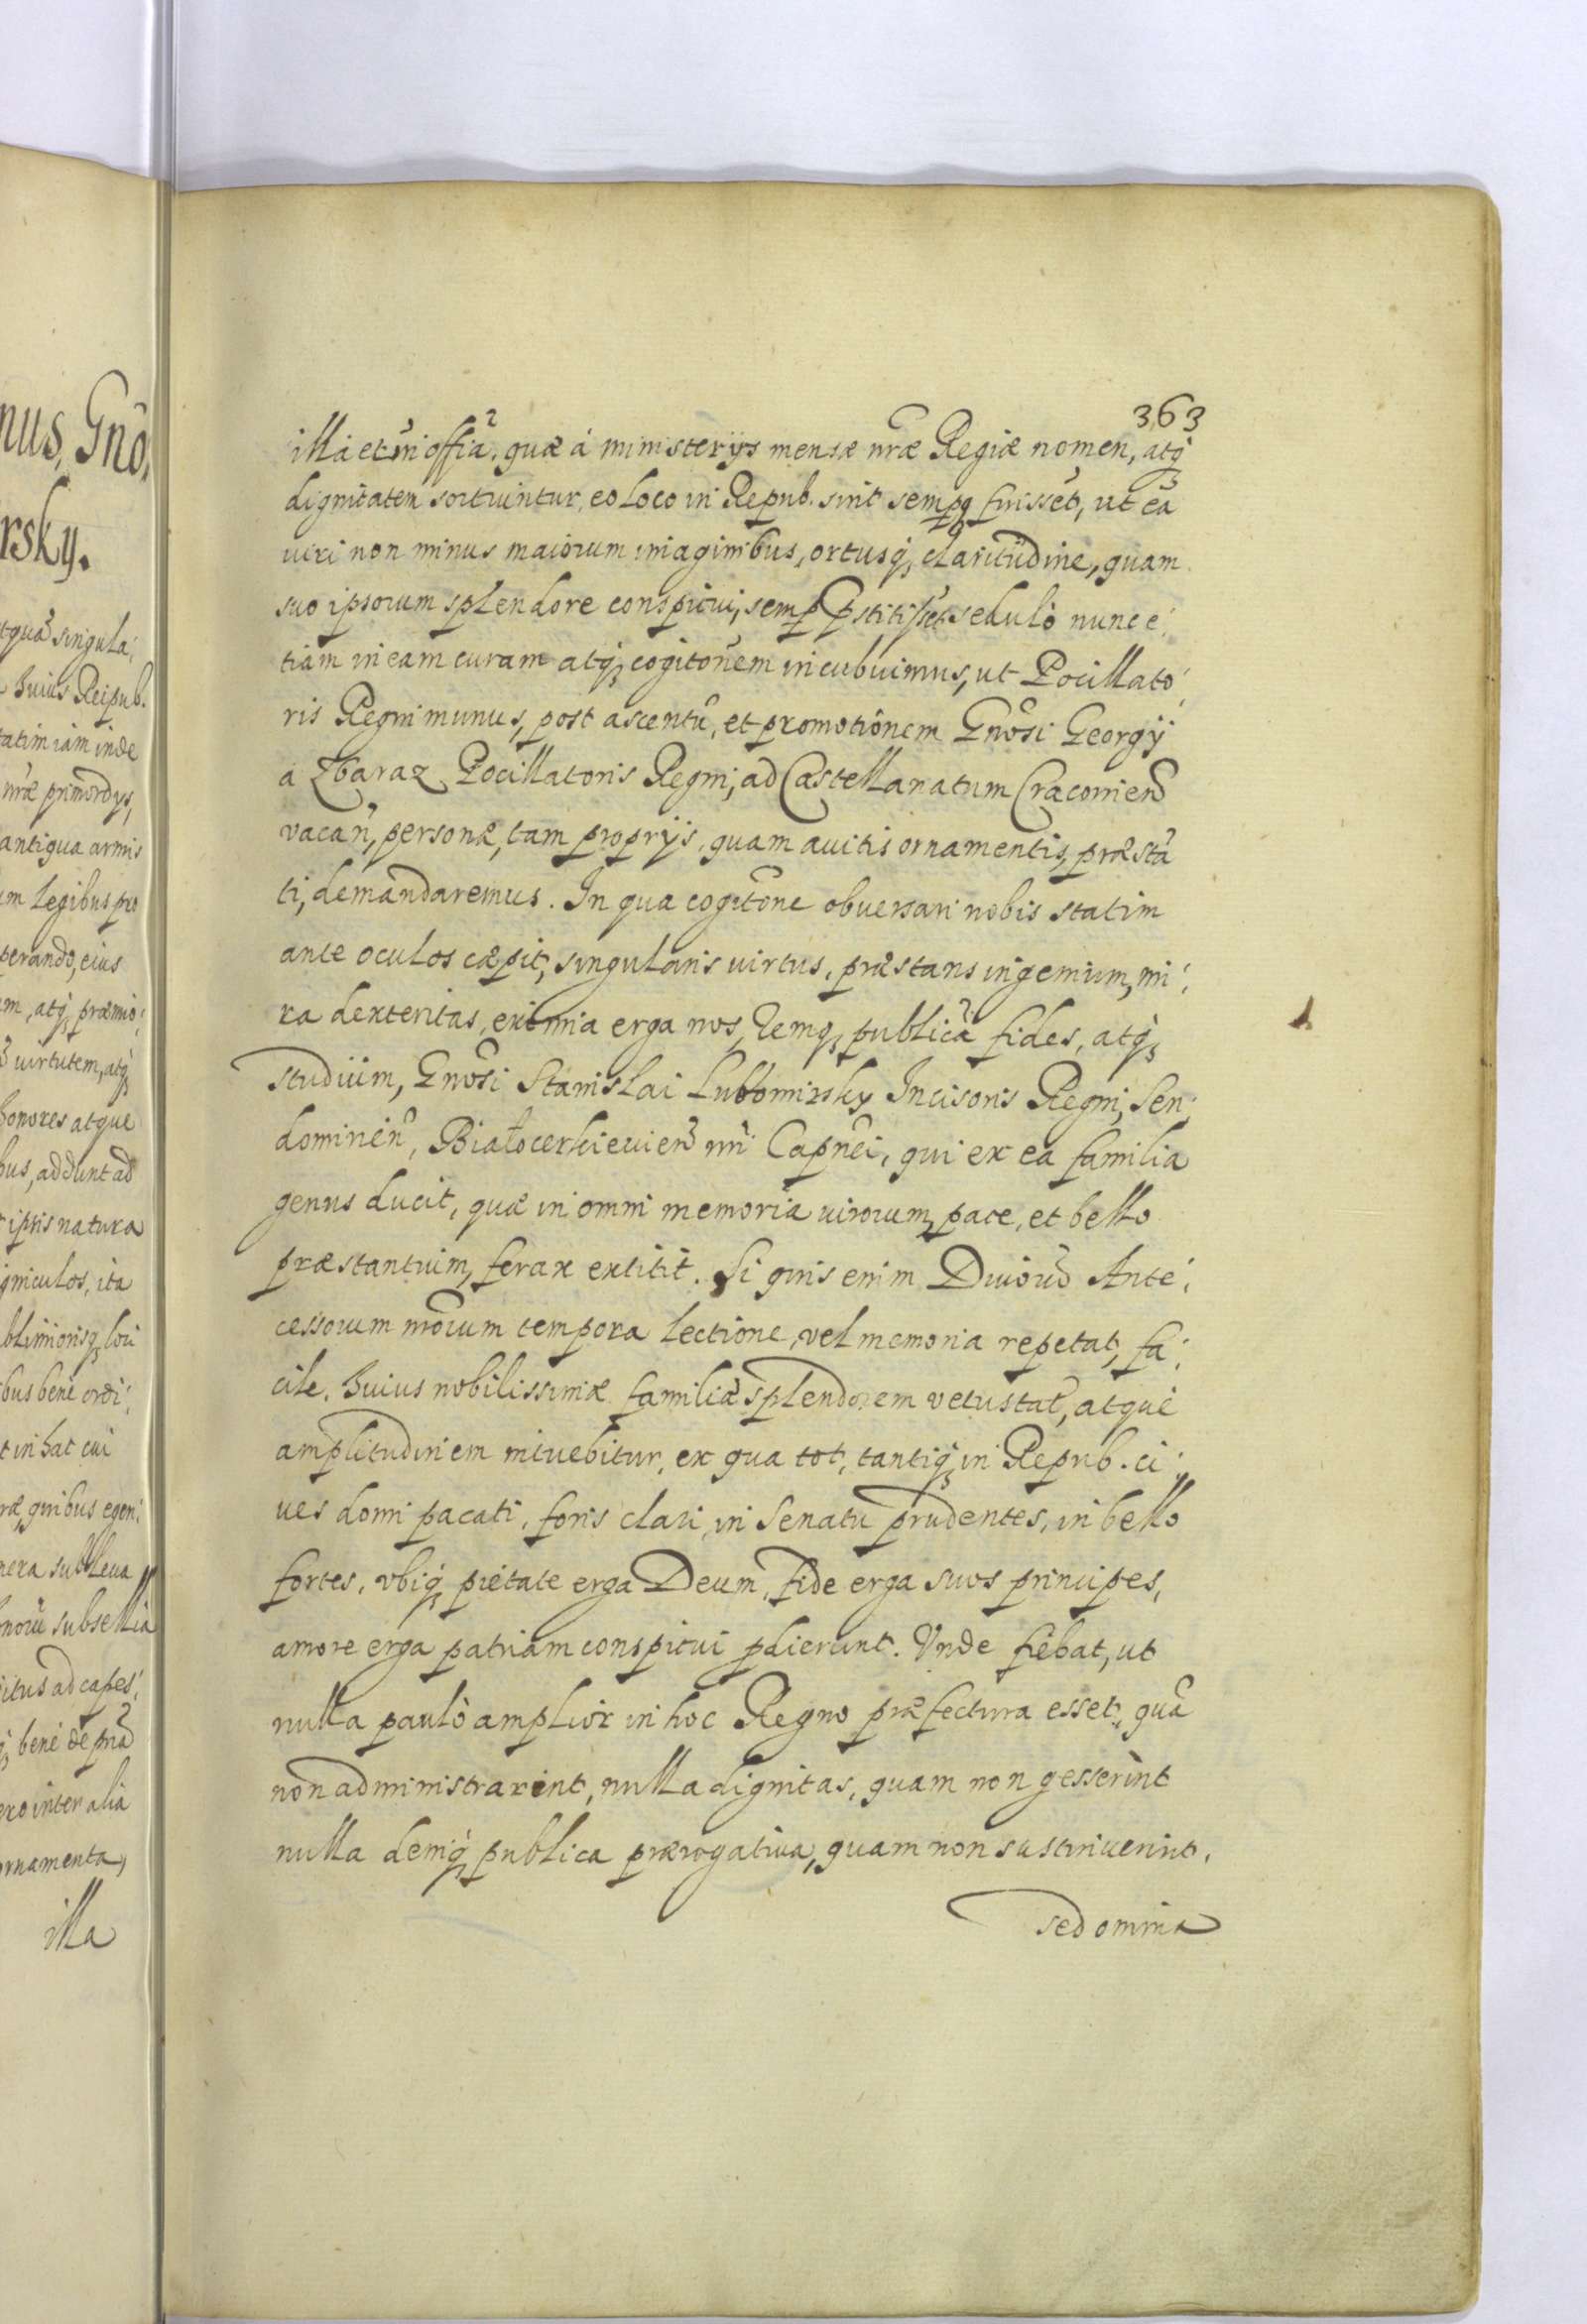 nus, Gnõ.
rsky.
tquã singula,
huius Reipub.
tatim iam inde
nr̃æ primordys,
antiqua armis
um legibus pro
perando, eius
m, atq́ præmio
virtutem, atq́
honores atque
bus, addunt ad
ipsis natura
gniculos, ita
blimiorisq́ loci
bus bene ordi,
t in hac cui
ræ, quibus egen,
nera subleua
norũ subsellia
itus ad capes,
q́ bene de pr̃ia
ero inter alia
ornamenta,
illa
363
illa et in offia, quæ á ministerijs mensæ nr̃æ Regiæ nomen, atq́
dignitatem sortiuntur, eo loco in Repub. sint sempq́ fuissẽt, ut ea
uiri non minus maiorum imaginibus, ortusq́ claritudine, quam
suo ipsorum splendore conspicui, semp pstitissẽt sedulò nunc e,
tiam in eam curam atq́ cogitonem incubuimus, ut Pocillato,
ris Regni munus, post ascentũ, et promotionem Gnõsi Georgij
a Zbaraz Pocillatoris Regni, ad Castellanatum Cracouieñ
vacañ, personæ, tam proprijs, quam auitis ornamentis, præstã
ti, demandaremus. In qua cogitõne obuersari nobis statim
ante oculos cæpit, singularis uirtus, præstans ingenium, mi,
ra dexteritas, eximia erga nos, Remq́ publicã fides, atq́
studium, Gnõsi Stanislai Lubomirsky Incisoris Regni, Sen,
domirieñ, Białocerkieuieñ nr̃i Capnẽi, qui ex ea familia
genus ducit, quæ in omni memoria uirorum, pace, et bello
præstantium, ferax extitit. Si quis enim Diuorũ Ante,
cessorum nr̃orum tempora lectione, vel memoria repetat, fa,
cile, huius nobilissimæ familiæ splendorem vetustat̃, atque
amplitudinem intuebitur, ex qua tot, tantiq́ in Repub. ci,
ues domi pacati, foris clari, in Senatu prudentes, in bello
fortes, vbiq́ pietate erga Deum, fide erga suos principes,
amore erga patriam conspicui pdierunt. Vnde fiebat, ut
nulla paulò amplior in hoc Regno præfectura esset, quã
non administrarint, nulla dignitas, quam non gesserint
nulla deniq́ publica prærogatiua, quam non sustinuerint.
sed omnia